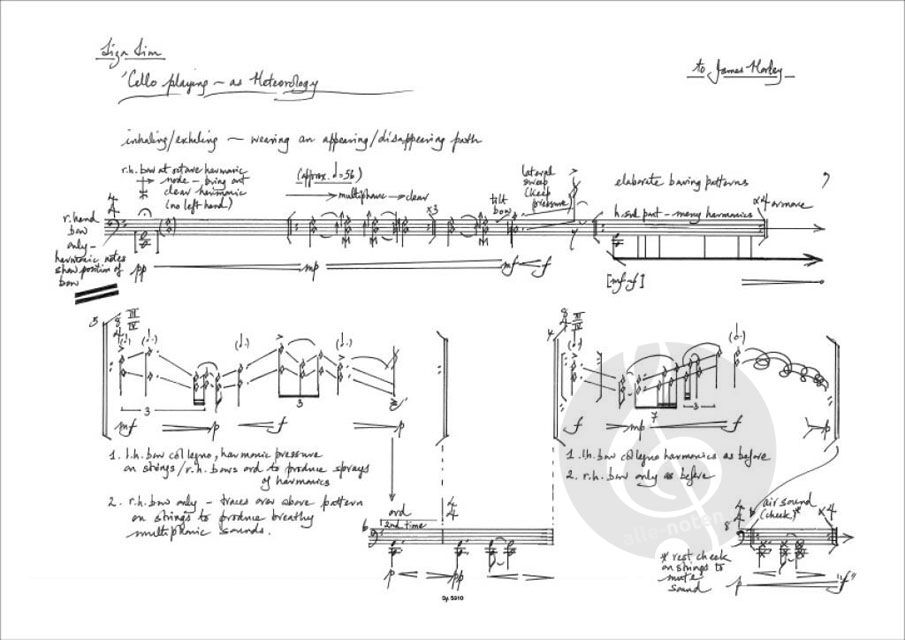 Liza Lim
'Cello playing – as Meteorology
to James Morley
inhaling/exhaling – weaving an appearing/disappearing path
r.h. bow at octave harmonic
node – bring out
clear harmonic
(no left hand)
(approx. ♩=56)
multiphonic → clear
lateral
sweep
(keep
pressure)
tilt
bow
elaborate bowing patterns
h.sul pont – many harmonics
x4 or more
x3
r.hand
bow
only –
harmonic notes
show position of
bow
4/4
M
M
M
pp
mp
mf
f
[mf-f]
5
8/4
III
IV
3
3
mf
p
f
p
4
8/4
III
IV
7
3
f
mp
f
p
1. l.h. bow col legno, harmonic pressure
on strings/r.h. bows ord to produce sprays
of harmonics
2. r.h. bow only – traces over above pattern
on strings to produce breathy
multiphonic sounds.
1. l.h. bow col legno harmonics as before
2. r.h. bow only as before
ord
2nd time
4/4
6
p
pp
8
4/4
air sound
(cheek)*
x4
* rest cheek
on strings to
mute
sound
p
"f"
alle-noten
Sy. 5010